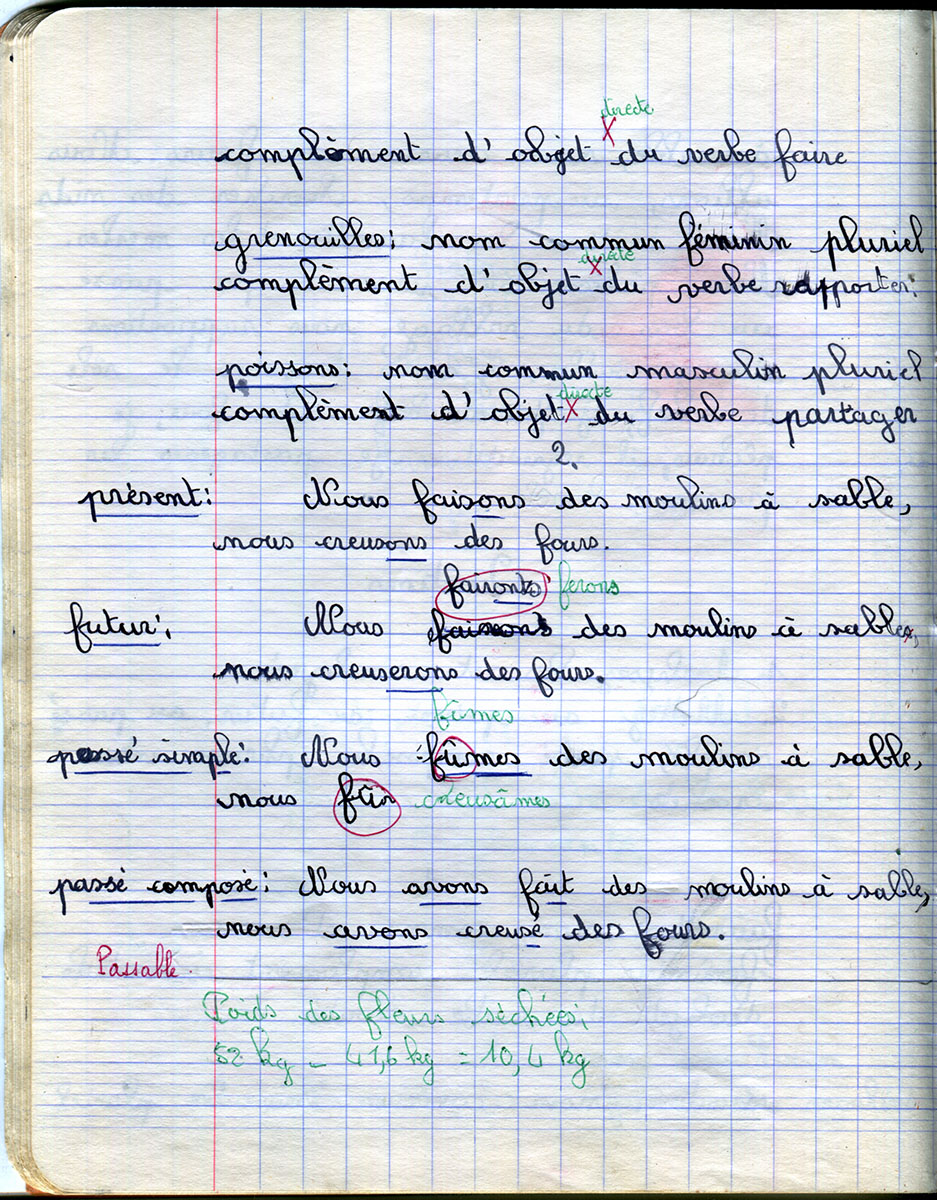 directe
complèment d'objet X du verbe faire
grenouilles: nom commun féminin pluriel
directe
complèment d'objet X du verbe rapporter.
poissons: nom commun masculin pluriel
directe
complèment d'objet X du verbe partager
2.
présent: Nous faisons des moulins à sable,
nous creusons des fours.
faironts ferons
futur: Nous des moulins à sable,
nous creuserons des fours.
fîmes
passé simple: Nous fûmes des moulins à sable,
nous fûs creusâmes
passé composé: Nous avons fait des moulins à sable,
nous avons creusé des fours.
Passable
Poids des fleurs séchées:
52 kg - 41,6 kg = 10,4 kg